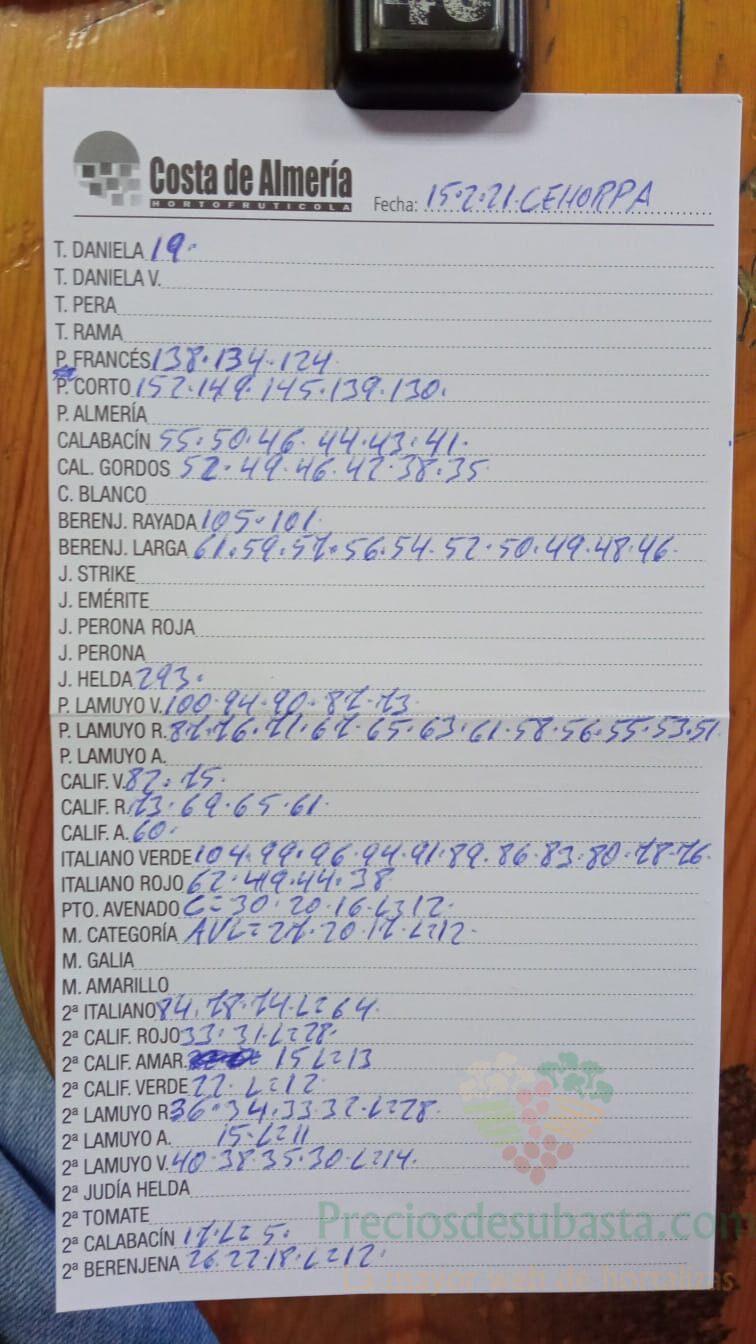 Costa de Almería
HORTOFRUTICOLA
Fecha: 15·2·21·CEHORPA
T. DANIELA 19·
T. DANIELA V.
T. PERA
T. RAMA
P. FRANCÉS 138·134·124·
P. CORTO 152·149·145·139·130·
P. ALMERÍA
CALABACÍN 55·50·46·44·43·41·
CAL. GORDOS 52·49·46·42·38·35
C. BLANCO
BERENJ. RAYADA 105·101·
BERENJ. LARGA 61·59·57·56·54·52·50·49·48·46·
J. STRIKE
J. EMÉRITE
J. PERONA ROJA
J. PERONA
J. HELDA 293·
P. LAMUYO V. 100·94·90·87·73·
P. LAMUYO R. 87·76·71·67·65·63·61·58·56·55·53·51
P. LAMUYO A.
CALIF. V. 82·75·
CALIF. R. 73·69·65·61·
CALIF. A. 60·
ITALIANO VERDE 104·99·96·94·91·89·86·83·80·78·76·
ITALIANO ROJO 62·49·44·38
PTO. AVENADO C=30·20·16·L=12·
M. CATEGORÍA AVL=27·20·17·L=12·
M. GALIA
M. AMARILLO
2ª ITALIANO 84·78·74·L=64·
2ª CALIF. ROJO 33·31·L=28·
2ª CALIF. AMAR. 15 L=13
2ª CALIF. VERDE 22·L=12·
2ª LAMUYO R 36·34·33·32·L=28·
2ª LAMUYO A. 15·L=11
2ª LAMUYO V. 40·38·35·30·L=14·
2ª JUDÍA HELDA
2ª TOMATE
2ª CALABACÍN 17·L=5·
2ª BERENJENA 26·22·18·L=12·
Preciosdesubasta.com
La mayor web de hortalizas